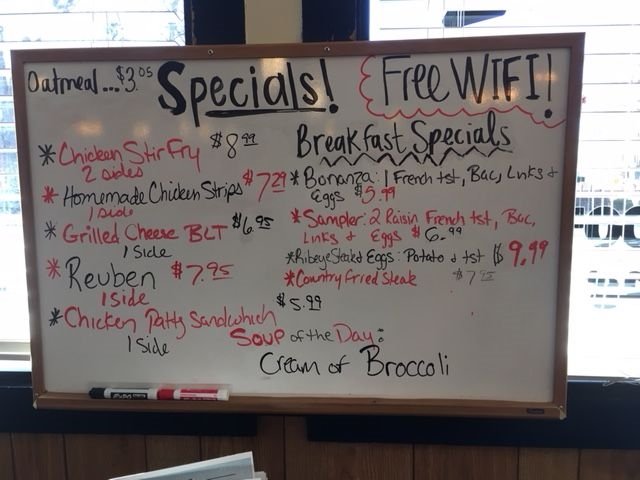 Oatmeal...$3.05
Specials!
Free WIFI!
* Chicken Stir Fry $8.99
2 sides
* Homemade Chicken Strips $7.29
1 side
* Grilled Cheese BLT $6.95
1 Side
* Reuben $7.95
1 side
* Chicken Patty Sandwhich $5.99
1 Side
Breakfast Specials
* Bonanza: 1 French tst, Bac, Lnks &
Eggs $5.99
* Sampler: 2 Raisin French tst, Bac,
Lnks & Eggs $6.99
* Ribeye Steak & Eggs: Potato & tst $9.99
* Country fried Steak $7.95
Soup of the Day:
Cream of Broccoli
EXPO